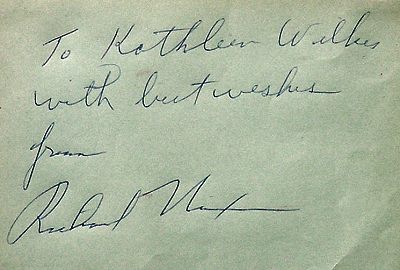 To Kathleen Wilkes
with best wishes
from
Richard Nixon